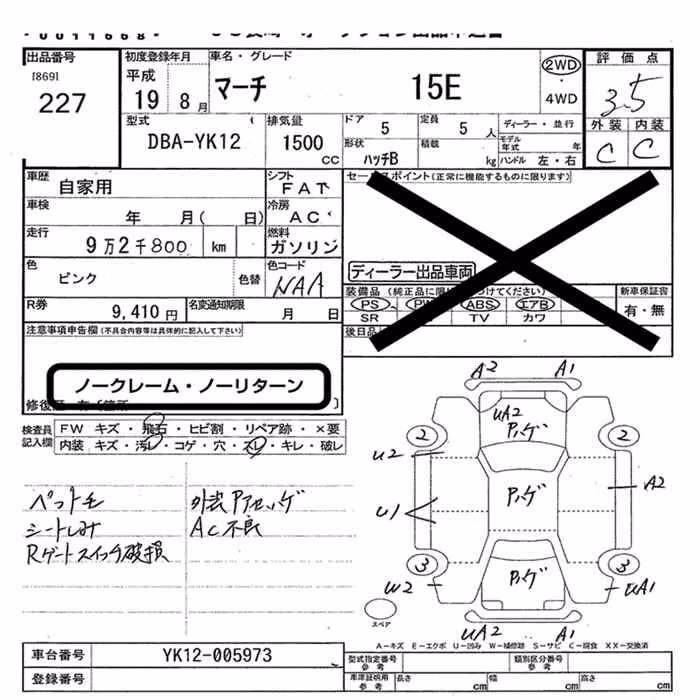 出品番号
[869]
227
初度登録年月
平成
19 8月
車名・グレード
マーチ 15E
2WD
・
4WD
評価点
3.5
外装 内装
C C
型式
DBA-YK12
排気量
1500
CC
ドア
5
定員
5 人
ディーラー・並行
モデル年式 年
形状
ハッチB
積載
kg
ハンドル 左・右
車歴
自家用
シフト
FAT
車検
年 月( 日)
冷房
AC
走行
9万2千800 km
燃料
ガソリン
色
ピンク
色替
色コード
NAA
R券
9,410円
名変通知期限
月 日
セールスポイント(正常に機能するものに限ります)
ディーラー出品車両
装備品
PS PW ABS エアB
SR TV カワ
新車保証書
有・無
後日品
注意事項申告欄(不具合内容等は具体的に記入して下さい)
ノークレーム・ノーリターン
修復歴
検査員記入欄
FW キズ・飛石・ヒビ割・リペア跡・×要
内装 キズ・汚レ・コゲ・穴・スレ・キレ・破レ
ペット毛
シートしみ
Rゲートスイッチ破損
外装Pアセッゲ
AC不良
A2 A1
UA2
アハゲ
2 2
U2
U1
アハゲ
A2
3 3
アハゲ
W2
UA1
UA2 A1
スペア
A－キズ E－エクボ U－凹み W－補修跡 S－サビ C－腐食 XX－交換済
車台番号
YK12-005973
登録番号
型式指定番号
参考
類別区分番号
参考
車庫証明用
参考
長さ cm
幅 cm
高さ cm